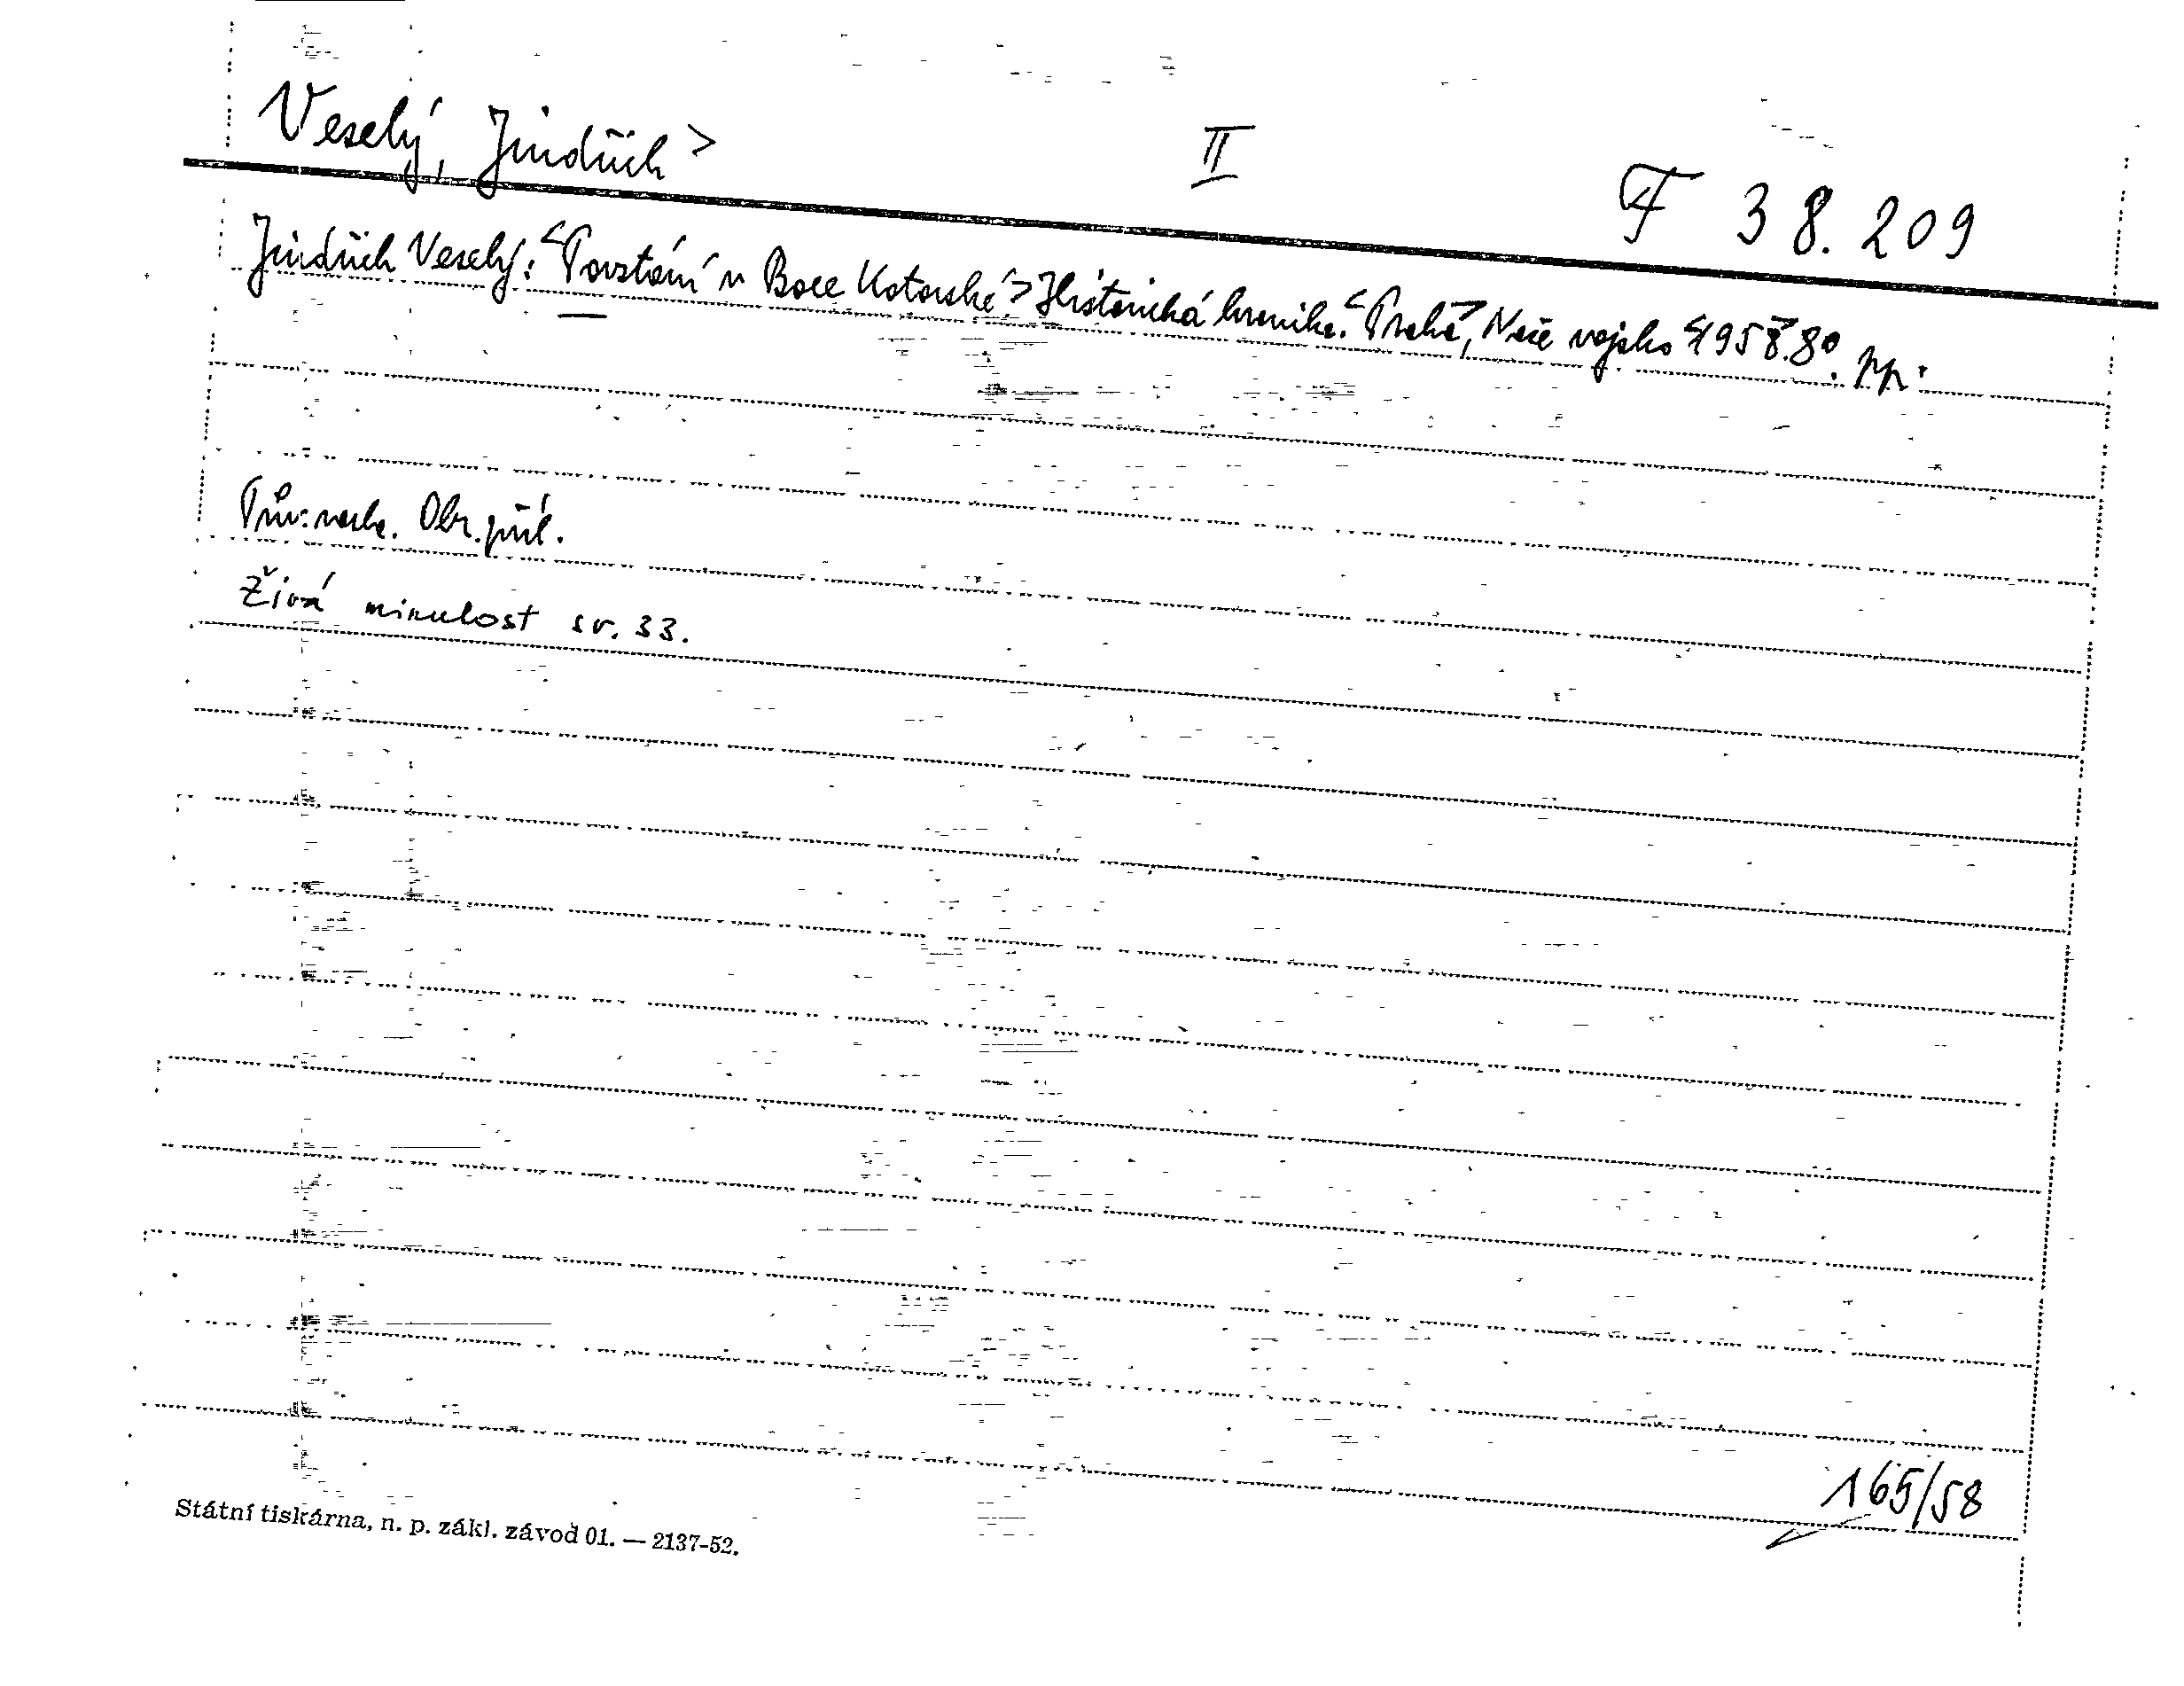 Veselý, Jindřich > II F 38.209
Jindřich Veselý: <Povstání v Boce Kotorské.> Historická kronika. <Praha>, Naše vojsko <1958>. 8°. pp.
Pův. vazba. Obr. příl.
Živá minulost sv. 33.
165/58
Státní tiskárna, n. p. zákl. závod 01. — 2137-52.